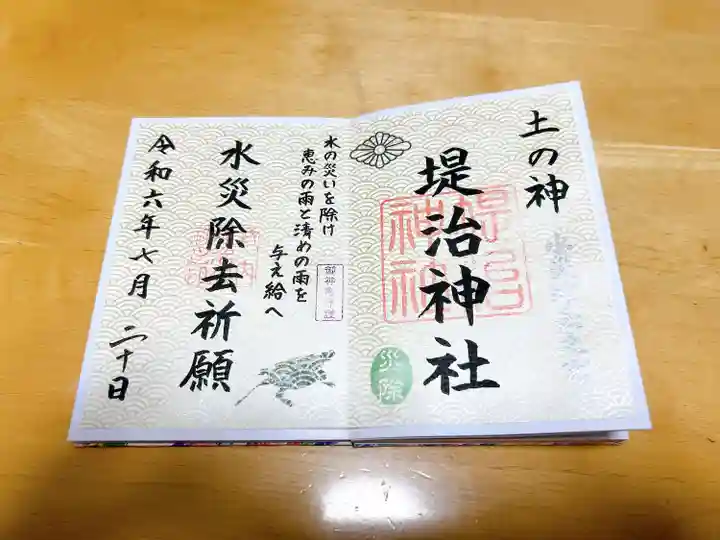 土の神
堤治神社
堤治
神社
水除
水の災いを除け
恵みの雨と清めの雨を
与え給へ
水災除去祈願
令和六年七月二十日